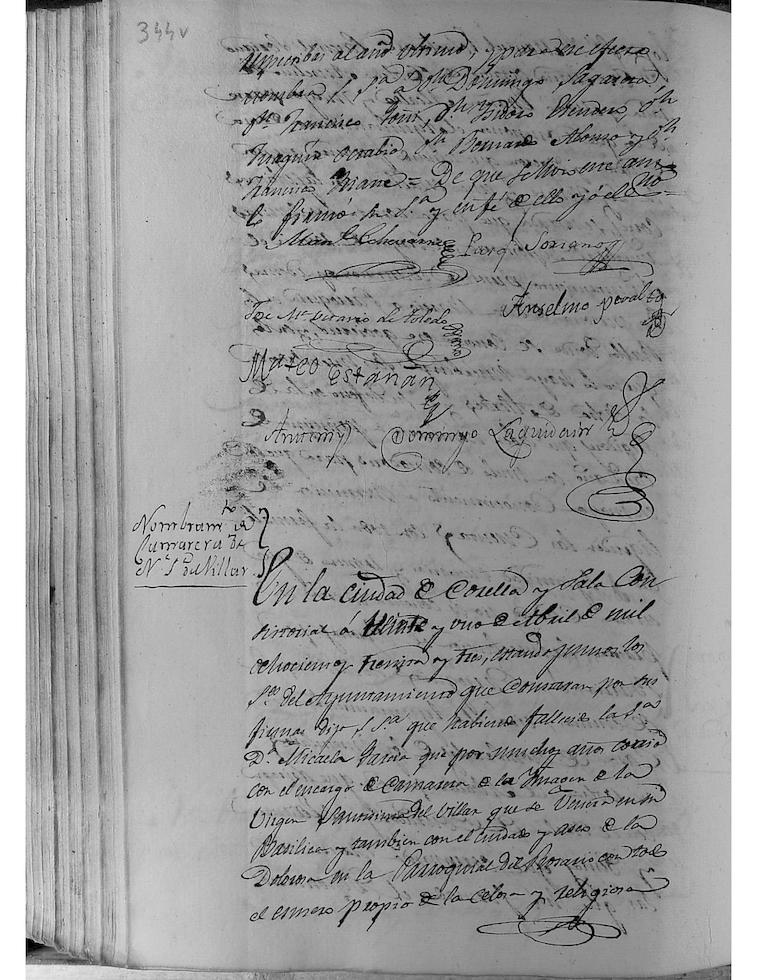 344v
á Dn Domingo Sagarra,
Dn Francisco Dn Isidoro Dn
Joaquin Octabio, Dn Bernardo Alonso y Dn
Ramon = De que se hizo este auto
lo firmó su Sª y en fé de ello yó el Esno
Manl Echavarria Jorge Soriano
Jose Mª Octavio de Toledo
Anselmo
Mateo Estañan
Antemi Domingo Laquidain
Nombramto de
Camarera de
N. S. del Villar
En la ciudad de Corella y Sala Con
sistorial á Veinte y uno de Abril de mil
ochocientos treinta y tres, estando juntos los
Sres del Ayuntamiento que constaran por sus
firmas dijo S. Sª que habiendo fallecido la Sra
Dª Micaela Garcia que por muchos años corrió
con el encargo de Camarera de la Imagen de la
Virgen Santisima del Villar que se Venera en su
Basilica y tambien con el cuidado y aseo de la
Dolorosa en la Parroquial del Rosario con todo
el esmero propio de la celosa y religiosa